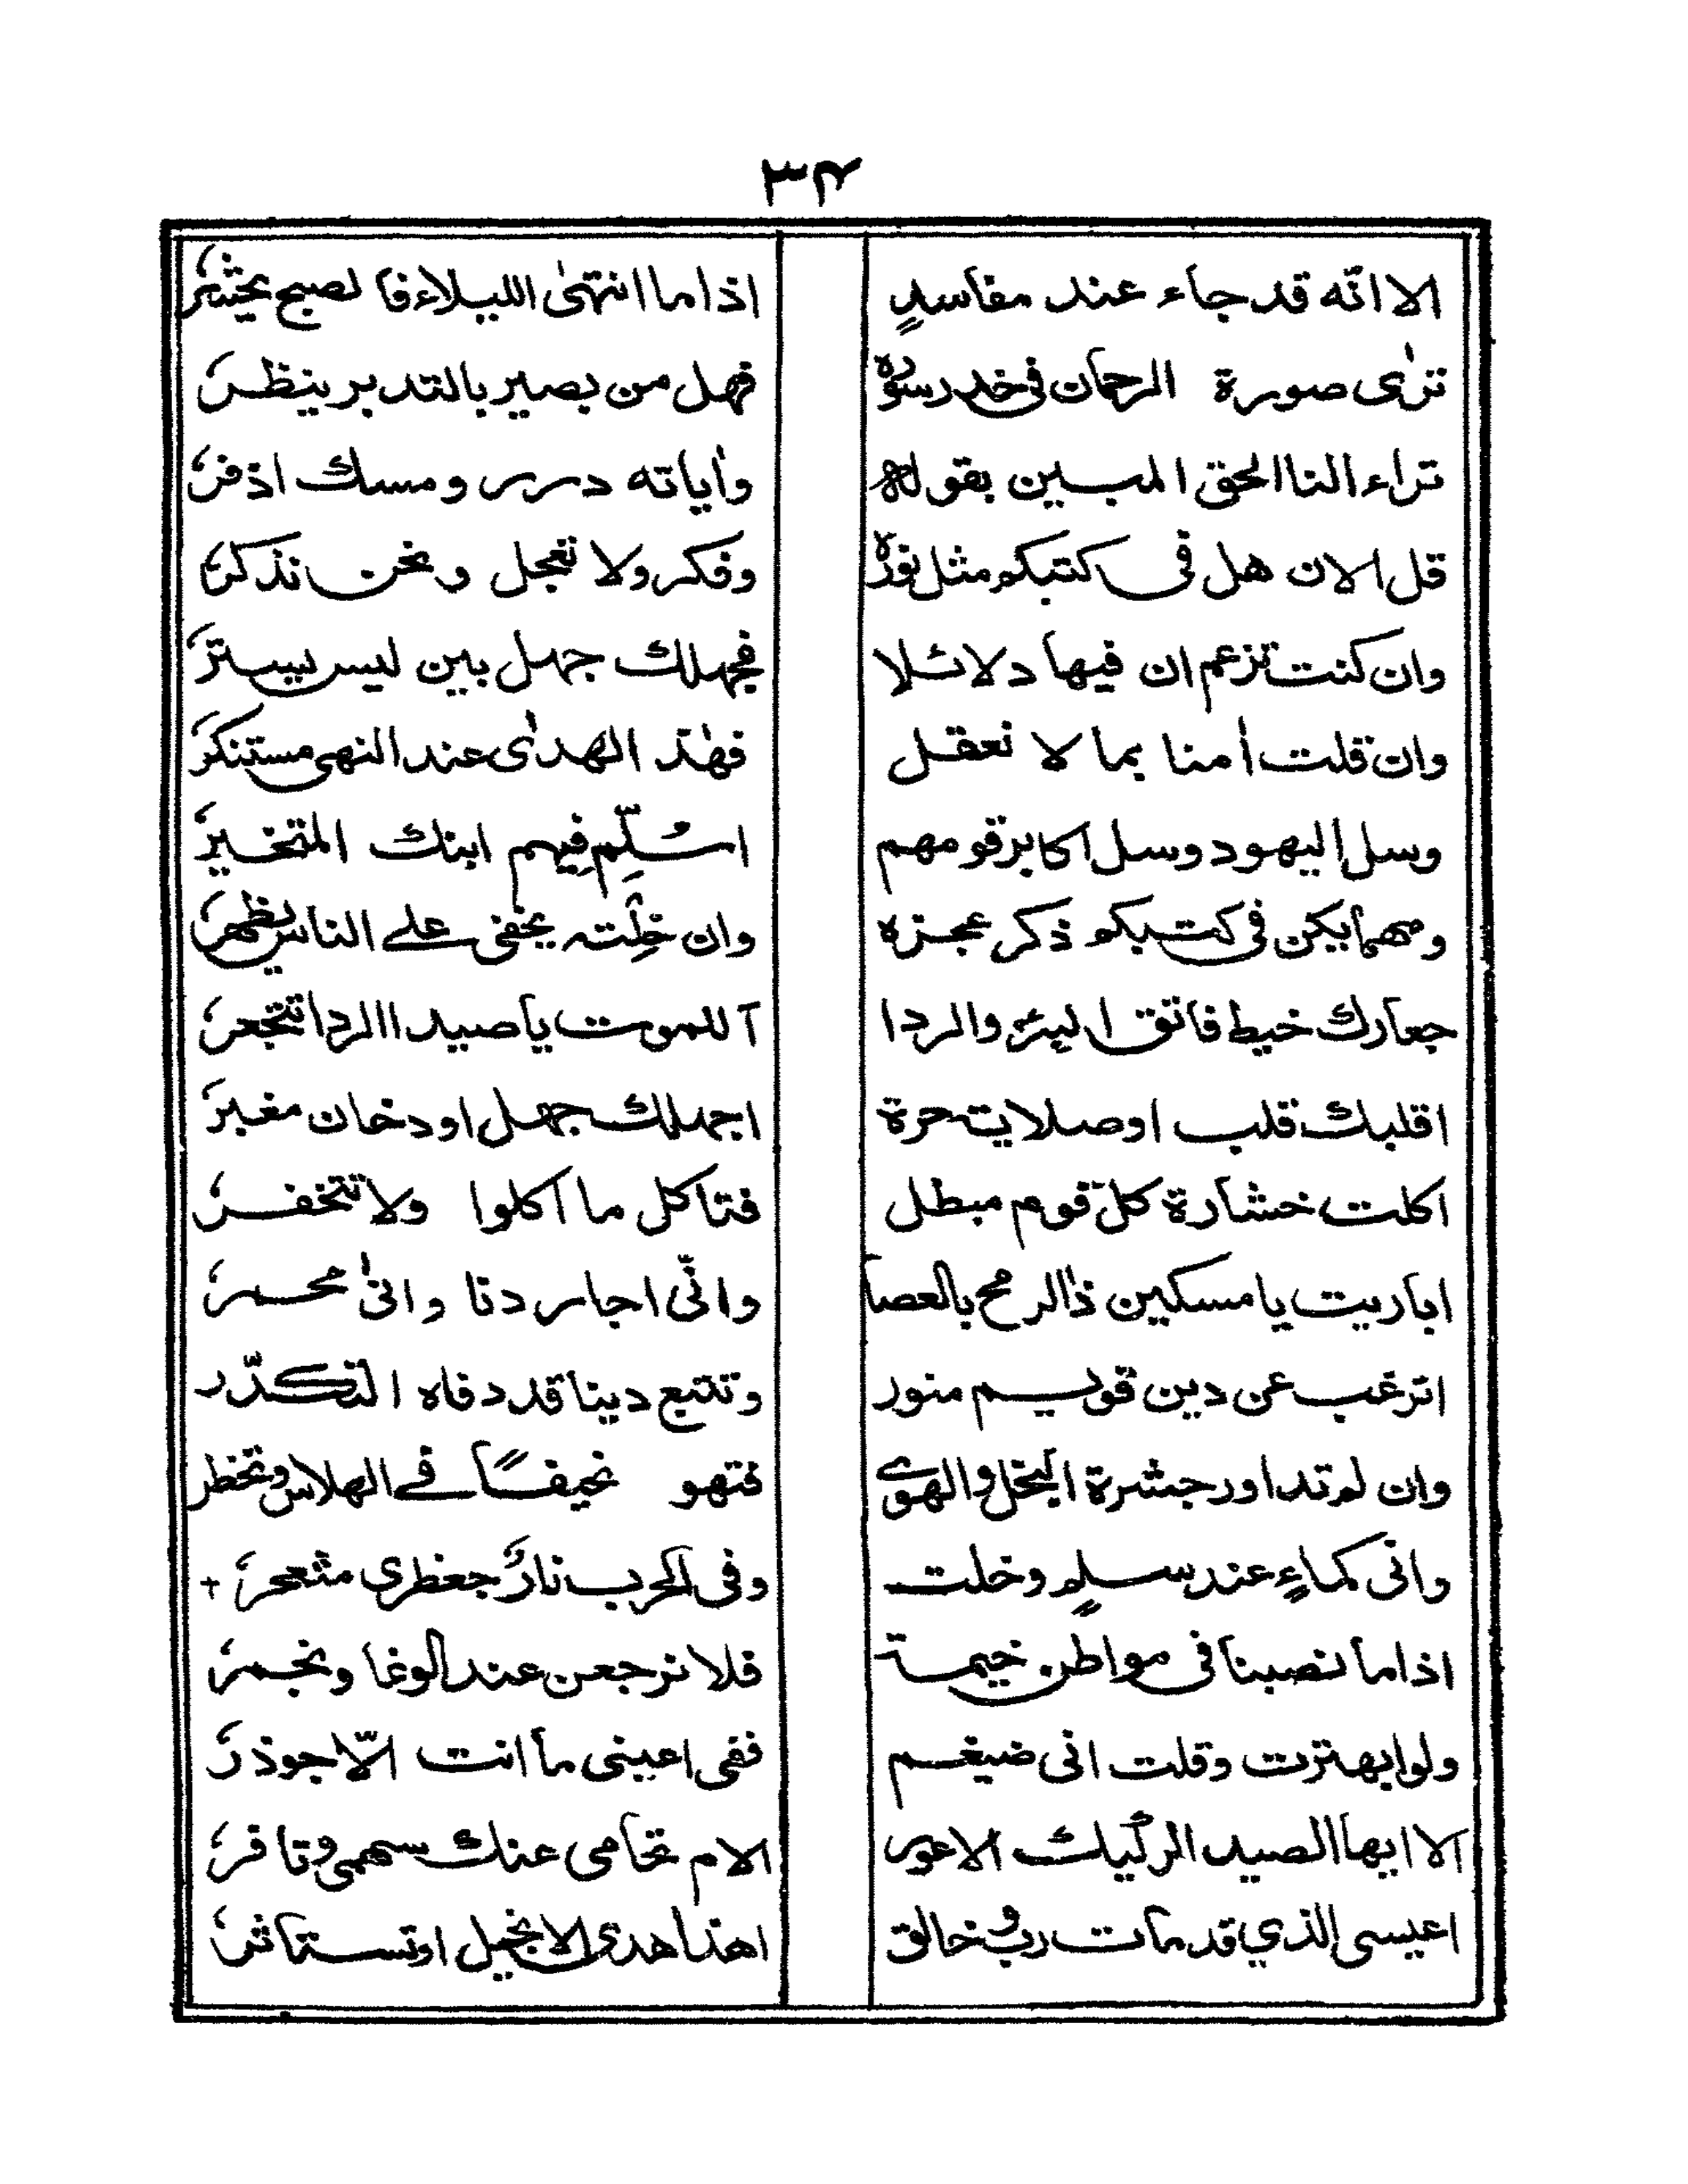 ٣٤
الا انّه قد جاء عند مفاسدٍ اذا ما انتهى الليلاء فا لصبح يحشرُ
ترٰى صورة الرحمان فى خدر سوره فهل من بصير بالتدبر ينظرُ
تراء النا الحق المبين بقوله وأياته درر ومسك اذفرُ
قل الان هل فى كتبكم مثل نوره وفكر ولا تعجل ونحن نذكرُ
وان كنت تزعم ان فيها دلائلا فجهلك جهل بين ليس يسترُ
وان قلت أمنا بما لا نعقل فهٰذ الهدٰى عند النهى مستنكرُ
وسل اليهود وسل اكابر قومهم اسُلّم فيهم ابنك المتخيرُ
ومهما يكن فى كتبكم ذكر عجزه وان خِلْته يخفى على الناس يظهرُ
جعارك خيط فاتق البئر والردا آ للموت يا صيد االردا تتجعرُ
اقلبك قلب او صلاية حرة اجهلك جهل او دخان مغبرُ
اكلت خشارة كل قوم مبطل فتاكل ما اكلوا ولا تتخفرُ
اباريت يا مسكين ذالرمح بالعصا وانّى اجارد نا وانى محمرُ
اترغب عن دين قويم منور وتتبع دينا قد دفاه التكدّر
وان لم تداور جشرة البخل والهوى فتهو نحيفًا فى الهلاس وتخطر
وانى كماءٍ عند سلمٍ وخلت وفى الحرب نارٌ جعظرى مثعجرُ +
اذا ما نصبنا فى مواطن خيمة فلا نرجعن عند الوغا ونجمرُ
ولو ابهتزت وقلت انى ضيغم ففى اعينى ما انت الّا جوذرُ
الا ايها الصيد الركيك الاعور الام تحامى عنك سهمى وتافرُ
اعيسى الذي قد مات رب وخالق اهذا هدى الانجيل او تستاثرُ